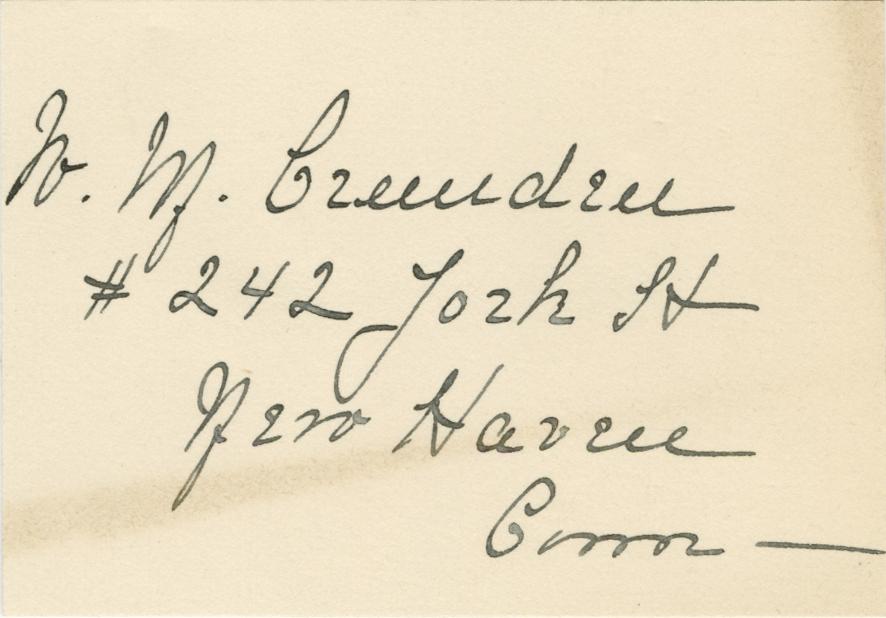 W. M. Crunden
# 242 York St
New Haven
Conn —